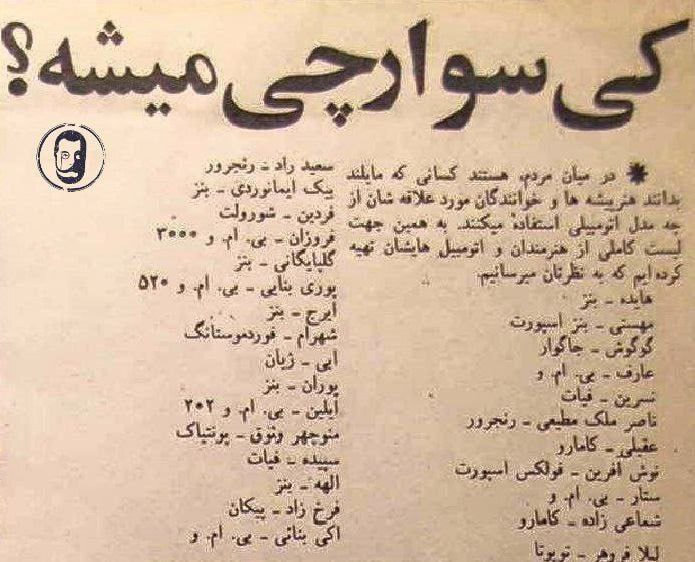 کی سوارچی میشه؟
✷ در میان مردم، هستند کسانی که مایلند
بدانند هنرپیشه ها و خوانندگان مورد علاقه شان از
چه مدل اتومبیلی استفاده میکنند. به همین جهت
لیست کاملی از هنرمندان و اتومبیل هایشان تهیه
کرده ایم که به نظرتان میرسانیم.
هایده - بنز
مهستی - بنز اسپورت
گوگوش - جاگوار
عارف - بی. ام. و
نسرین - فیات
ناصر ملک مطیعی - رنجرور
عقیلی - کامارو
نوش آفرین - فولکس اسپورت
ستار - بی. ام. و
شماعی زاده - کامارو
لیلا فروهر - تویوتا
سعید راد - رنجرور
بیک ایمانوردی - بنز
فردین - شورولت
فروزان - بی. ام. و ۳۰۰۰
گلپایگانی - بنز
پوری بنایی - بی. ام. و ۵۲۰
ایرج - بنز
شهرام - فوردموستانگ
ابی - ژیان
پوران - بنز
آیلین - بی. ام. و ۲۰۲
منوچهر وثوق - پونتیاک
سپیده - فیات
الهه - بنز
فرخ زاد - پیکان
اکی بنائی - بی. ام. و